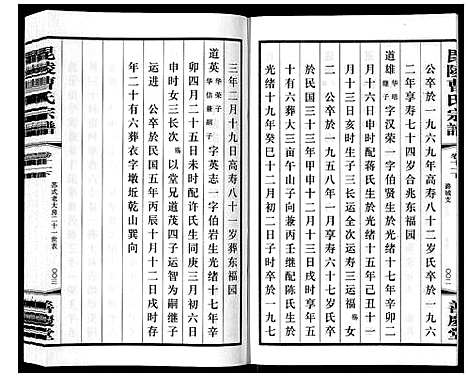 毘陵曹氏宗譜
卷十二下
路城支
〇〇二
善慶堂
公卒於一九六九年高寿八十二岁氏卒於一九六
二年享寿七十四岁合兆东福园
道雄 华培继子 字汉荣一字伯贤生於光绪十五年己丑十一
月十六日申时配蒋氏生於光绪十七年辛卯二
月十三日亥时生子三长运全次运寿三运福 女
二 公卒於一九五八年一月享寿六十七岁氏卒
於光绪三十三年甲申十二月十三日子时享年二
十有六葬大三亩午山子向兼丙壬继配陈氏生於
光绪十九年十二月初二日子时卒於一九七
三年二月十九日高寿八十一岁葬东福园
道英 华荣子 华信兼嗣子 字英志一字伯岩生光绪十七年辛
卯四月二十五日未时配许氏生同庚三月初六日
申时女三长次三 以堂兄道茂四子运智为嗣继子
运进 公卒於民国五年丙辰十月十二日戌时存
年二十有六葬衣字墩坵乾山巽向
毘陵曹氏宗譜
卷十二下
苏式老大房二十一世表
〇〇三
善慶堂